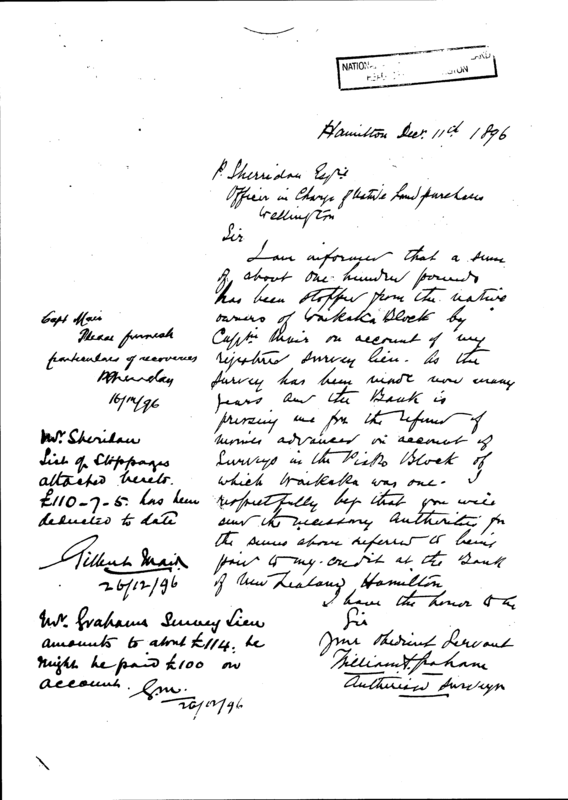 Hamilton Decr. 11th 1896
P. Sherridan Esqre
Officer in Charge of Native Land purchases
Wellington
Sir
I am informed that a sum
of about one hundred pounds
has been stopped from the native
owners of Waikaka Block by
Captn Mair on account of my
registered survey lien. As the
survey has been made now many
years and the Bank is
pressing me for the refund of
monies advanced on account of
Surveys in the Piako Block of
which Waikaka was one. I
respectfully beg that you will
send the necessary Authorities for
the sums above referred to being
paid to my credit at the Bank
of New Zealand Hamilton
I have the honor to be
Sir
Your Obedient Servant
William Graham
Authorised Surveyor
Capt Mair
Please furnish
particulars of recoveries
PSheridan
16/12/96
Mr. Sheridan
List of Stoppages
attached hereto.
£110-7-5 has been
deducted to date
Gilbert Mair
26/12/96
Mr. Grahams Survey Lien
amounts to about £114. he
might be paid £100 on
account. G.M.
26/12/96
NATION